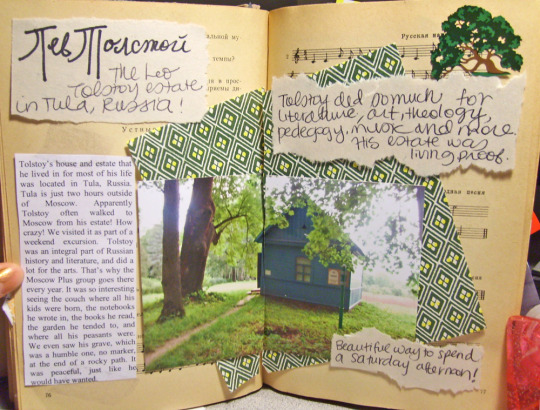 Лев Толстой
The Leo
Tolstoy estate
in Tula, Russia!
Tolstoy's house and estate that
he lived in for most of his life
was located in Tula, Russia.
Tula is just two hours outside
of Moscow. Apparently
Tolstoy often walked to
Moscow from his estate! How
crazy! We visited it as part of a
weekend excursion. Tolstoy
was an integral part of Russian
history and literature, and did a
lot for the arts. That's why the
Moscow Plus group goes there
every year. It was so interesting
seeing the couch where all his
kids were born, the notebooks
he wrote in, the books he read,
the garden he tended to, and
where all his peasants were.
We even saw his grave, which
was a humble one, no marker,
at the end of a rocky path. It
was peaceful, just like he
would have wanted.
темпы?
Русская
Tolstoy did so much for
literature, art, theology,
pedegogy, music and more.
His estate was
living proof.
песня
Beautiful way to spend
a Saturday afternoon!
16
17